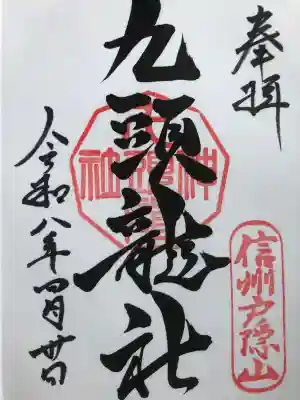 奉拝
信州戸隠山
九頭龍社
神
社
令和八年四月卅日